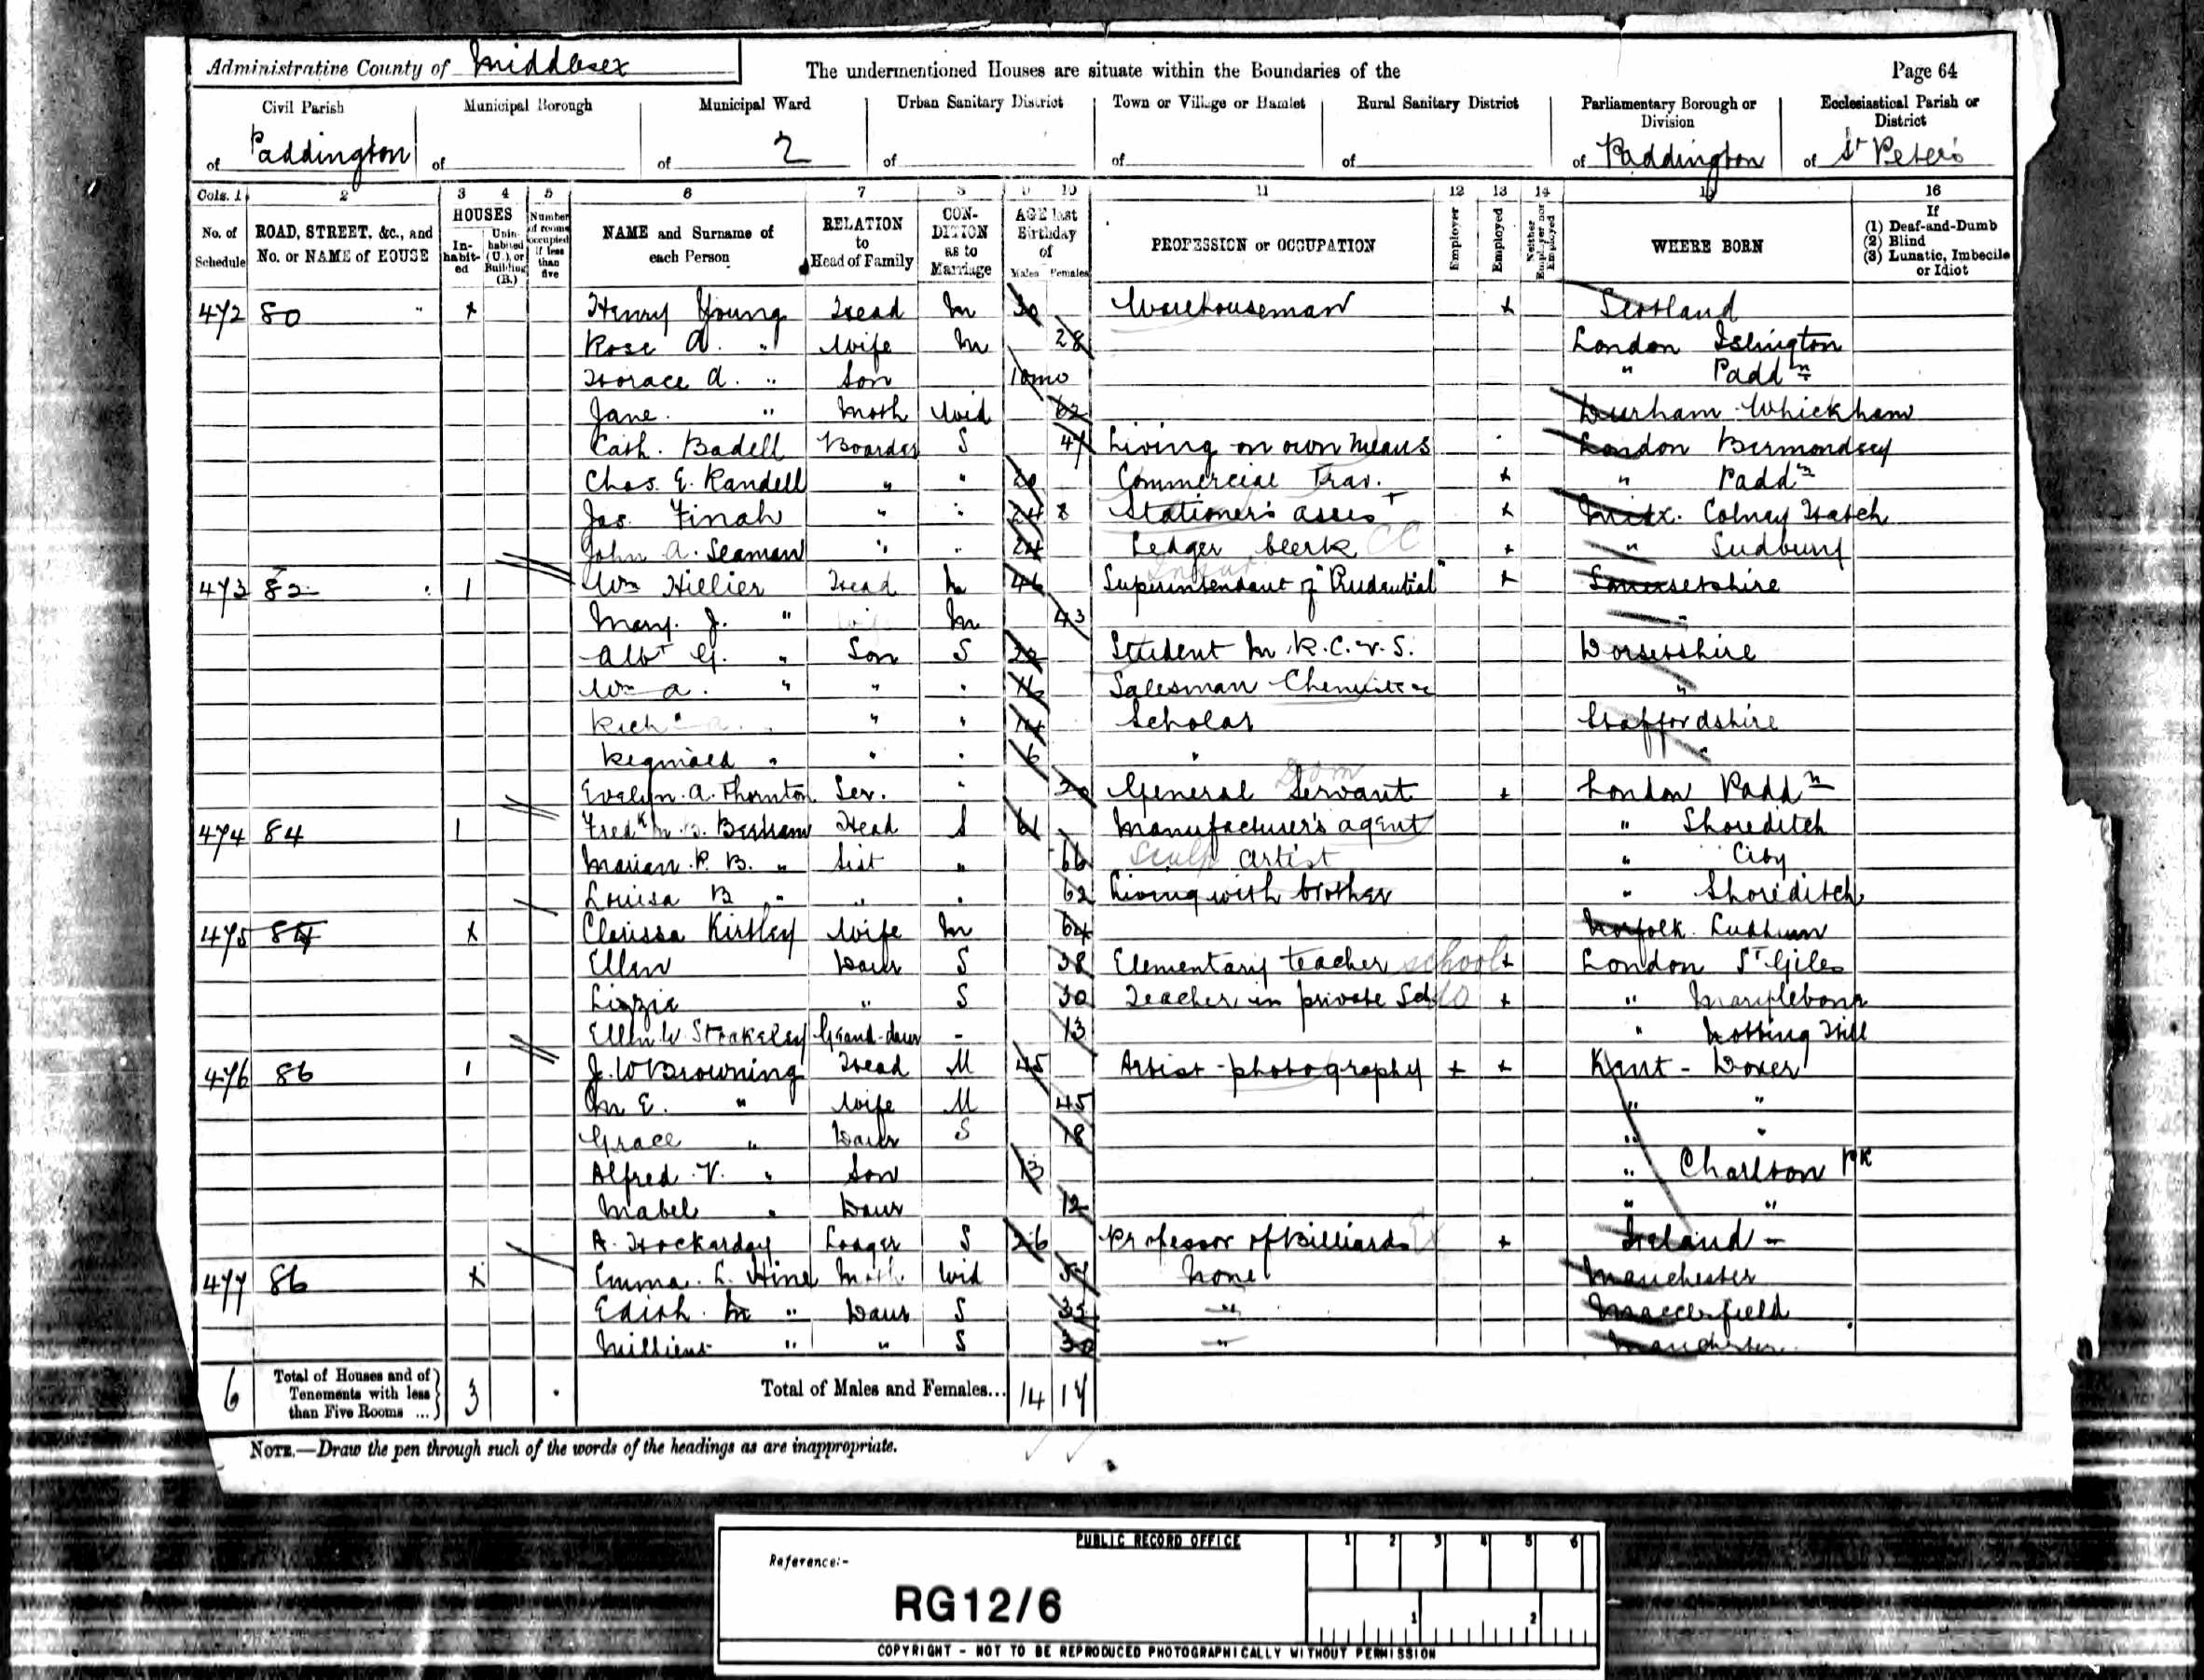 Administrative County of Middlesex
The undermentioned Houses are situate within the Boundaries of the
Page 64
Civil Parish
Municipal Borough
Municipal Ward
Urban Sanitary District
Town or Village or Hamlet
Rural Sanitary District
Parliamentary Borough or Division
Ecclesiastical Parish or District
of Paddington of of 2 of of of of Paddington of St Peter's
Cols. 1 2 3 4 5 6 7 8 9 10 11 12 13 14 15 16
No. of Schedule
ROAD, STREET, &c., and No. or NAME of HOUSE
HOUSES
Inhabited
Uninhabited (U.), or Building (B.)
Number of rooms occupied if less than five
NAME and Surname of each Person
RELATION to Head of Family
CONDITION as to Marriage
AGE last Birthday of
Males Females
PROFESSION or OCCUPATION
Employer
Employed
Neither Employer nor Employed
WHERE BORN
If
(1) Deaf-and-Dumb
(2) Blind
(3) Lunatic, Imbecile or Idiot
472 80 " x Henry Young Head M 30 Warehouseman x Scotland
Rose A. " Wife M 28 London Islington
Horace A. " Son 10mo " Paddn
Jane " Moth Wid 62 Durham Whickham
Cath. Badell Boarder S 47 Living on own means London Bermondsey
Chas. E. Randell " " 20 Commercial Trav. x " Paddn
Jas. Finah " " 24 Stationer's Assist x Midx. Colney Hatch
John A. Seaman " " 24 Ledger Clerk x " Sudbury
473 82 1 Wm Hillier Head M 46 Superintendant of "Prudential" x Somersetshire
Mary J. " M 43 "
Albt G. " Son S 22 Student M.R.C.V.S. Dorsetshire
Wm A. " " " 16 Salesman "
Richd " " 14 Scholar Staffordshire
Reginald " " " 6 " "
Evelyn A. Thornton Ser. " 20 General Servant x London Paddn
Dom
474 84 1 Fredk Bertram Head S 61 Manufacturer's agent " Shoreditch
Marian R. B. " Sist " 66 Sculp Artist " City
Louisa B " " " 62 Living with brother " Shoreditch
475 84 x Clarissa Kirtley Wife M 64 Norfolk Ludham
Ellen Daur S 38 Elementary teacher school x London St Giles
Lizzie " S 30 Teacher in private Sch x " Marylebone
Ellen W Stakeley Grand-daur - 13 " Notting Hill
476 86 1 J. W Browning Head M 45 Artist - photography x x Kent - Dover
M E. " Wife M 45 " "
Grace " Daur S 18 " "
Alfred V. " Son 13 " Charlton Pk
Mabel " Daur 12 " "
A. Hockaday Lodger S 26 Professor of Billiards x Ireland -
477 86 x Emma L. Hine Wid None Manchester
Edith M " Daur S " Macclesfield
Millicent " " S 30 " Manchester
6 Total of Houses and of Tenements with less than Five Rooms ... 3 Total of Males and Females... 14 17
NOTE.—Draw the pen through such of the words of the headings as are inappropriate.
PUBLIC RECORD OFFICE
1 2 3 4 5 6
Reference:-
RG12/6
1 2
COPYRIGHT - NOT TO BE REPRODUCED PHOTOGRAPHICALLY WITHOUT PERMISSION